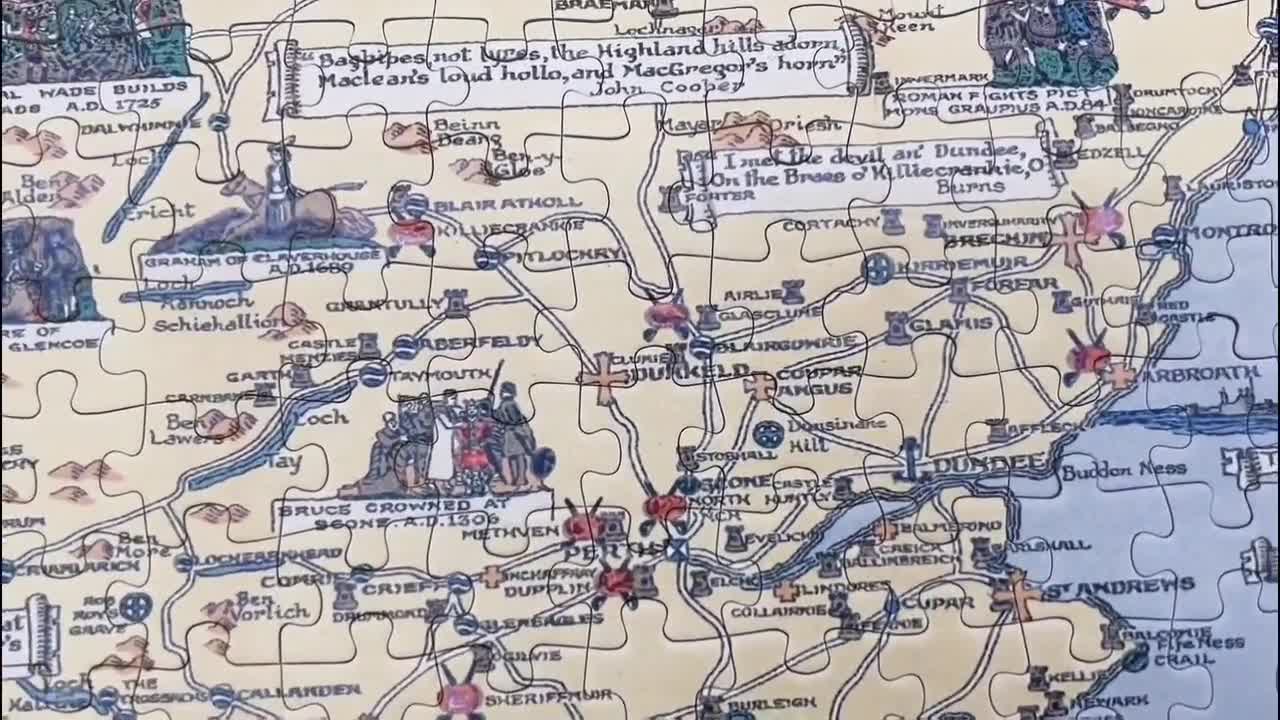 BRAEMAR
Lochnagar
Mount
Keen
"Bagpipes, not lyres, the Highland hills adorn,
Maclean's loud hollo, and MacGregor's horn"
John Cooper
INVERMARK
ROMAN FIGHTS PICT
MONS GRAUPIUS A.D. 84
AL WADE BUILDS
ADS A.D. 1725
DALWHINNIE
Loch
Ericht
Beinn
Dearg
Ben-y-
Gloe
Mayar
Driesh
"I met the devil an' Dundee,
On the Braes o' Killiecrankie, O"
Burns
FORTER
BALBEGNO
EDZELL
LAURISTO
Ben
Alder
BLAIR ATHOLL
KILLIECRANKIE
PITLOCHRY
GRAHAM OF CLAVERHOUSE
A.D. 1689
CORTACHY
INVERQUHARITY
BRECHIN
MONTRO
Loch
Rannoch
Schiehallion
KIRRIEMUIR
FORFAR
AIRLIE
GLASCLUNE
GLAMIS
GUTHRIE
RED
CASTLE
RE OF
GLENCOE
GRANTULLY
CASTLE
MENZIES
ABERFELDY
GARTH
TAYMOUTH
CARNBANE
CLUNIE
DUNKELD
BLAIRGOWRIE
COUPAR
ANGUS
ARBROATH
Ben
Lawers
Loch
Tay
Dunsinane
Hill
AFFLECK
STOBHALL
SCONE
CASTLE
HUNTLY
NORTH
INCH
DUNDEE
Buddon Ness
BRUCE CROWNED AT
SCONE. A.D. 1306
METHVEN
PERTH
EVELICK
BALMERINO
CREICH
BALLINBREICH
EARLSHALL
Ben
More
CRIANLARICH
LOCHEARNHEAD
COMRIE
CRIEFF
INCHAFFRAY
DUPPLIN
ELCHO
LINDORES
ST ANDREWS
ROB
ROYS
GRAVE
Ben
Vorlich
DRUMMOND
GLENEAGLES
COLLAIRNIE
CUPAR
BALCOMIE
Fife Ness
CRAIL
OGILVIE
KELLIE
Loch
THE
TROSSACHS
CALLANDER
SHERIFFMUIR
BURLEIGH
NEWARK